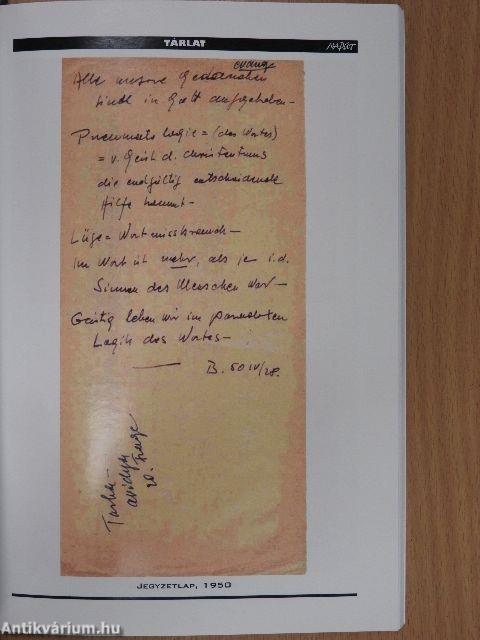 TÁRLAT
NAPÚT
Alle unsere Gedanken
sind in Gott aufgehoben –
Pneumato logie = (des Wortes)
= v. Geist d. Christentums
die endgültig entscheidende
Hilfe kommt –
Lüge = Wortmissbrauch –
Im Wort ist mehr, als je i. d.
Sinnen des Menschen war –
Geistig leben wir im
Logik des Wortes –
B. 50 IV/28.
avidya
Frage
JEGYZETLAP, 1950
Antikvárium.hu